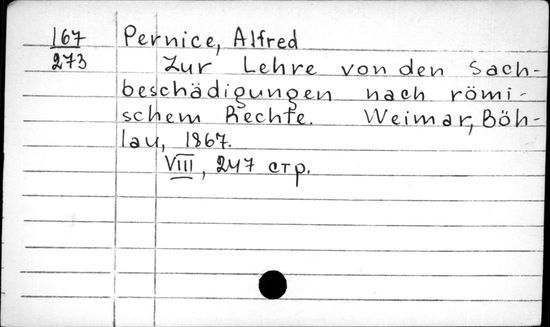 167 Pernice, Alfred
273 Zur Lehre von den Sach-
beschädigungen nach römi-
schem Rechte. Weimar, Böh-
lau, 1867.
VIII, 247 стр.